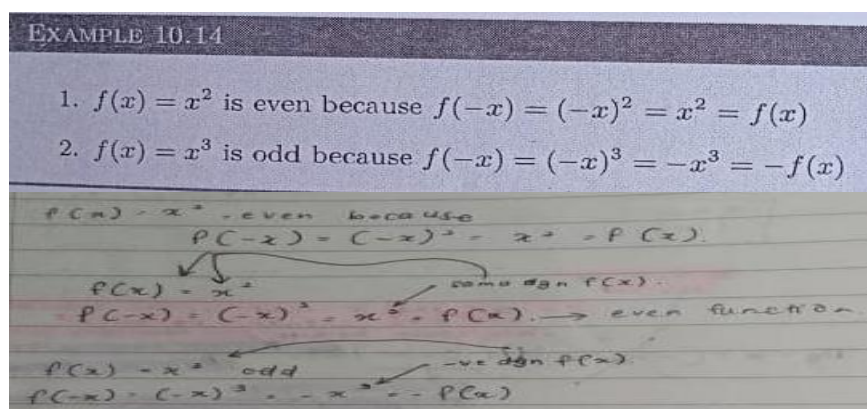 EXAMPLE 10.14
1. f(x) = x² is even because f(-x) = (-x)² = x² = f(x)
2. f(x) = x³ is odd because f(-x) = (-x)³ = -x³ = -f(x)
f(x) - x² - even because
f(-x) = (-x)² = x² = f(x).
f(x) = x² same sgn f(x).
f(-x) = (-x)² = x² = f(x). → even function.
f(x) = x³ odd -ve sgn f(x).
f(-x) = (-x)³ = -x³ = -f(x)